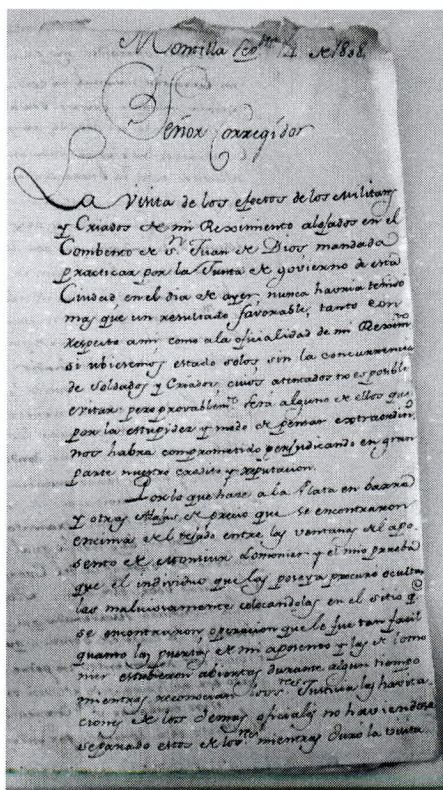 Montilla Sep.re 4. de 1808.
Señor Corregidor
La visita de los efectos de los Militares
y Criados de mi Reximiento alojados en el
Combento de Sn. Juan de Dios mandada
practicar por la Junta de govierno de esta
Ciudad, en el dia de ayer, nunca havria tenido
mas que un resultado favorable, tanto con
respecto a mi como a la oficialidad de mi Reximto
si ubiesemos estado solos, sin la concurrencia
de Soldados y Criados, cuios atentados no es posible
evitar: pero provablemte. será alguno de ellos que
por la estupidez y modo de pensar extraordino.
nos habra comprometido perjudicando en gran
parte nuestro credito y reputacion.
Por lo que hase a la Plata en barras
y otras Alajas de precio que se encontraron
encima de el tejado entre las ventanas de el apo-
sento de Monsieur Lomenier y el mio prueba
que el individuo que las poseya procuró ocultar
las maliciosamente colocandolas en el sitio qe.
se encontraron, operacion que le fue tan facil
quanto las puertas de mi aposento y las de Lome
nier estubieron abiertas durante algun tiempo
mientras reconocian los Sres. Justicia las havita
ciones de los demas oficiales no haviendose
separado estos de los Sres. mientras duró la visita